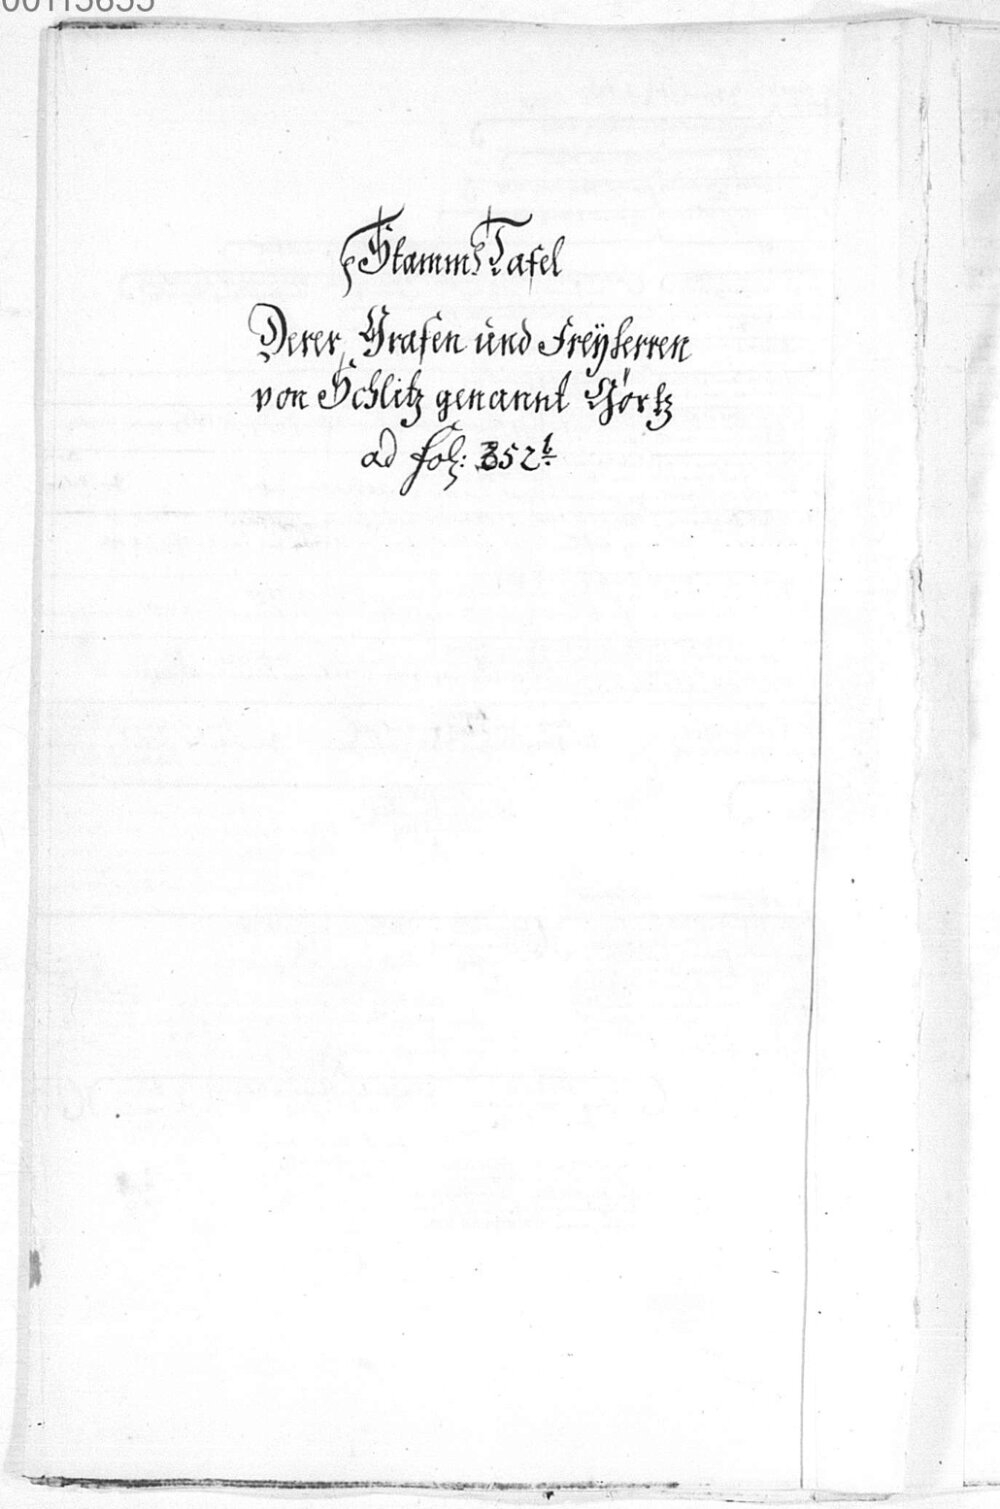 00113655
Stamm Tafel
Derer Grafen und Freÿherren
von Schlitz genannt Görtz
ad fol: 352 b